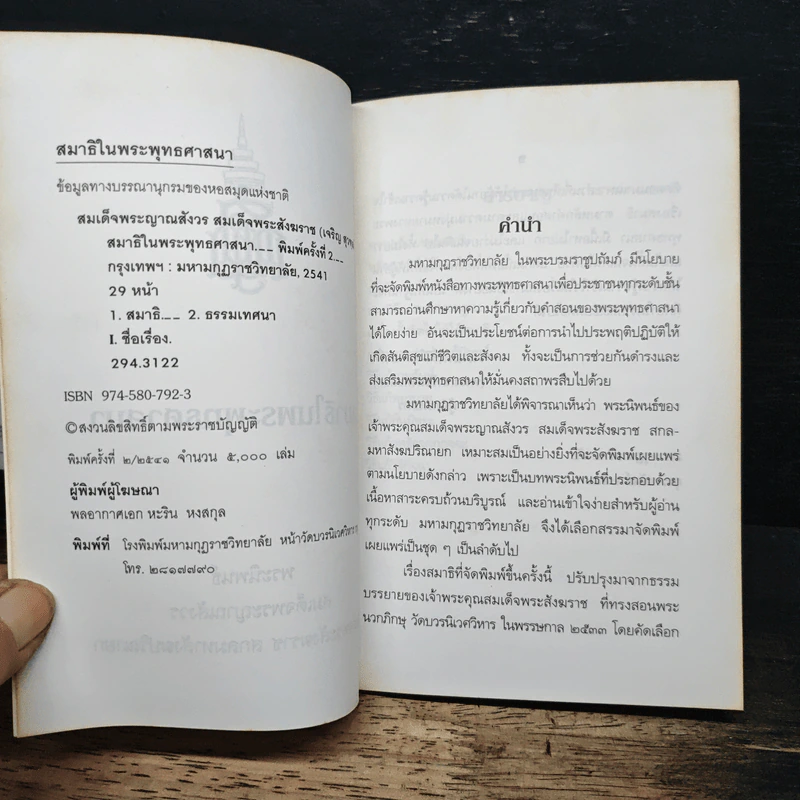 สมาธิในพระพุทธศาสนา
ข้อมูลทางบรรณานุกรมของหอสมุดแห่งชาติ
สมเด็จพระญาณสังวร สมเด็จพระสังฆราช (เจริญ
สมาธิในพระพุทธศาสนา.__ พิมพ์ครั้งที่ 2.__
กรุงเทพฯ : มหามกุฏราชวิทยาลัย, 2541
29 หน้า
1. สมาธิ.__ 2. ธรรมเทศนา
I. ชื่อเรื่อง.
294.3122
ISBN 974-580-792-3
©สงวนลิขสิทธิ์ตามพระราชบัญญัติ
พิมพ์ครั้งที่ ๒/๒๕๔๑ จำนวน ๕,๐๐๐ เล่ม
ผู้พิมพ์ผู้โฆษณา
พลอากาศเอก หะริน หงสกุล
พิมพ์ที่ โรงพิมพ์มหามกุฏราชวิทยาลัย หน้าวัดบวรนิเวศวิหาร
โทร. ๒๘๑๗๗๙๐
คำนำ
มหามกุฏราชวิทยาลัย ในพระบรมราชูปถัมภ์ มีนโยบาย
ที่จะจัดพิมพ์หนังสือทางพระพุทธศาสนาเพื่อประชาชนทุกระดับชั้น
สามารถอ่านศึกษาหาความรู้เกี่ยวกับคำสอนของพระพุทธศาสนา
ได้โดยง่าย อันจะเป็นประโยชน์ต่อการนำไปประพฤติปฏิบัติให้
เกิดสันติสุขแก่ชีวิตและสังคม ทั้งจะเป็นการช่วยกันดำรงและ
ส่งเสริมพระพุทธศาสนาให้มั่นคงสถาพรสืบไปด้วย
มหามกุฏราชวิทยาลัยได้พิจารณาเห็นว่า พระนิพนธ์ของ
เจ้าพระคุณสมเด็จพระญาณสังวร สมเด็จพระสังฆราช สกล-
มหาสังฆปริณายก เหมาะสมเป็นอย่างยิ่งที่จะจัดพิมพ์เผยแพร่
ตามนโยบายดังกล่าว เพราะเป็นบทพระนิพนธ์ที่ประกอบด้วย
เนื้อหาสาระครบถ้วนบริบูรณ์ และอ่านเข้าใจง่ายสำหรับผู้อ่าน
ทุกระดับ มหามกุฏราชวิทยาลัย จึงได้เลือกสรรมาจัดพิมพ์
เผยแพร่เป็นชุด ๆ เป็นลำดับไป
เรื่องสมาธิที่จัดพิมพ์ขึ้นครั้งนี้ ปรับปรุงมาจากธรรม
บรรยายของเจ้าพระคุณสมเด็จพระสังฆราช ที่ทรงสอนพระ
นวกภิกษุ วัดบวรนิเวศวิหาร ในพรรษกาล ๒๕๓๓ โดยคัดเลือก